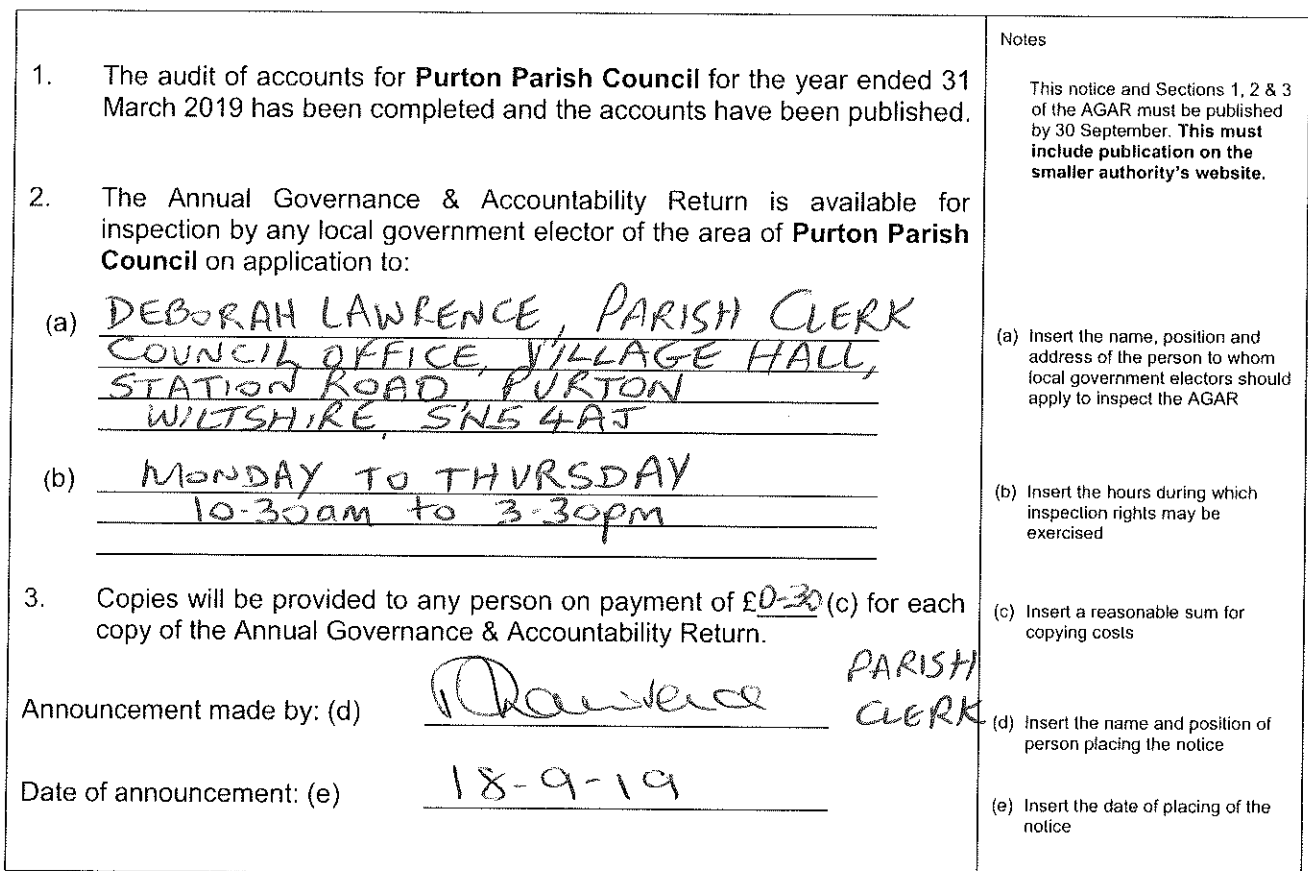 1. The audit of accounts for Purton Parish Council for the year ended 31
March 2019 has been completed and the accounts have been published.
2. The Annual Governance & Accountability Return is available for
inspection by any local government elector of the area of Purton Parish
Council on application to:
(a) DEBORAH LAWRENCE, PARISH CLERK
COUNCIL OFFICE, VILLAGE HALL,
STATION ROAD, PURTON
WILTSHIRE, SN5 4AJ
(b) MONDAY TO THURSDAY
10-30am to 3-30pm
3. Copies will be provided to any person on payment of £0-30 (c) for each
copy of the Annual Governance & Accountability Return.
Announcement made by: (d) DLawrence PARISH
CLERK
Date of announcement: (e) 18-9-19
Notes
This notice and Sections 1, 2 & 3
of the AGAR must be published
by 30 September. This must
include publication on the
smaller authority's website.
(a) Insert the name, position and
address of the person to whom
local government electors should
apply to inspect the AGAR
(b) Insert the hours during which
inspection rights may be
exercised
(c) Insert a reasonable sum for
copying costs
(d) Insert the name and position of
person placing the notice
(e) Insert the date of placing of the
notice